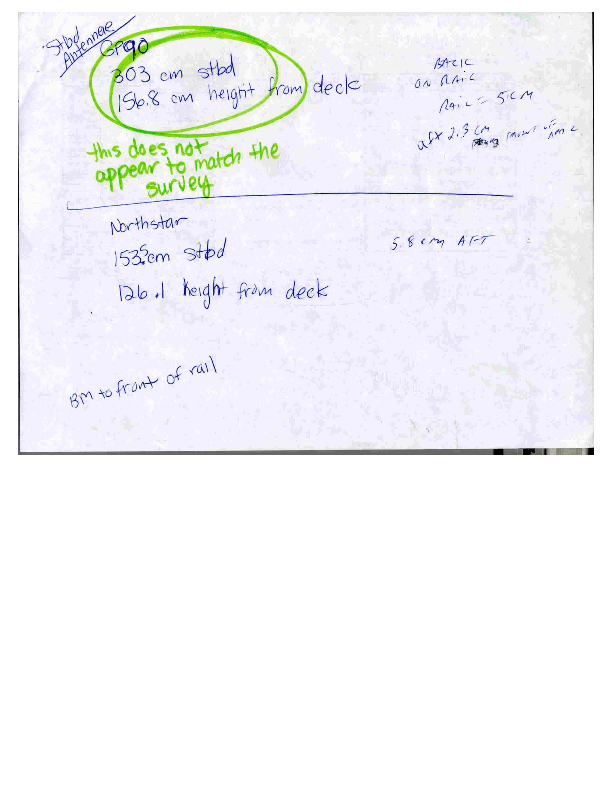 Stbd
Antennae
GP90
303 cm stbd
156.8 cm height from deck
BACK
ON RAIL
RAIL = 5CM
aft 2.3 CM FRONT OF
this does not
appear to match the
survey
Northstar
153.5cm stbd
5.8 cm AFT
126.1 height from deck
BM to front of rail